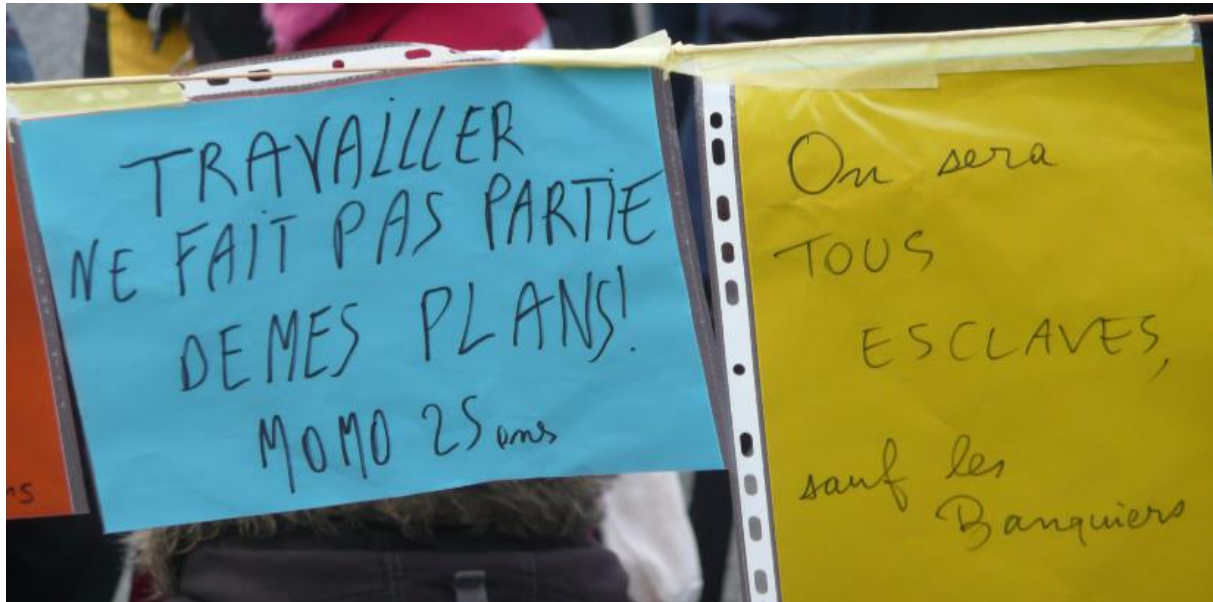 TRAVAILLER
NE FAIT PAS PARTIE
DE MES PLANS!
MOMO 25 ans
On sera
TOUS
ESCLAVES,
sauf les
Banquiers